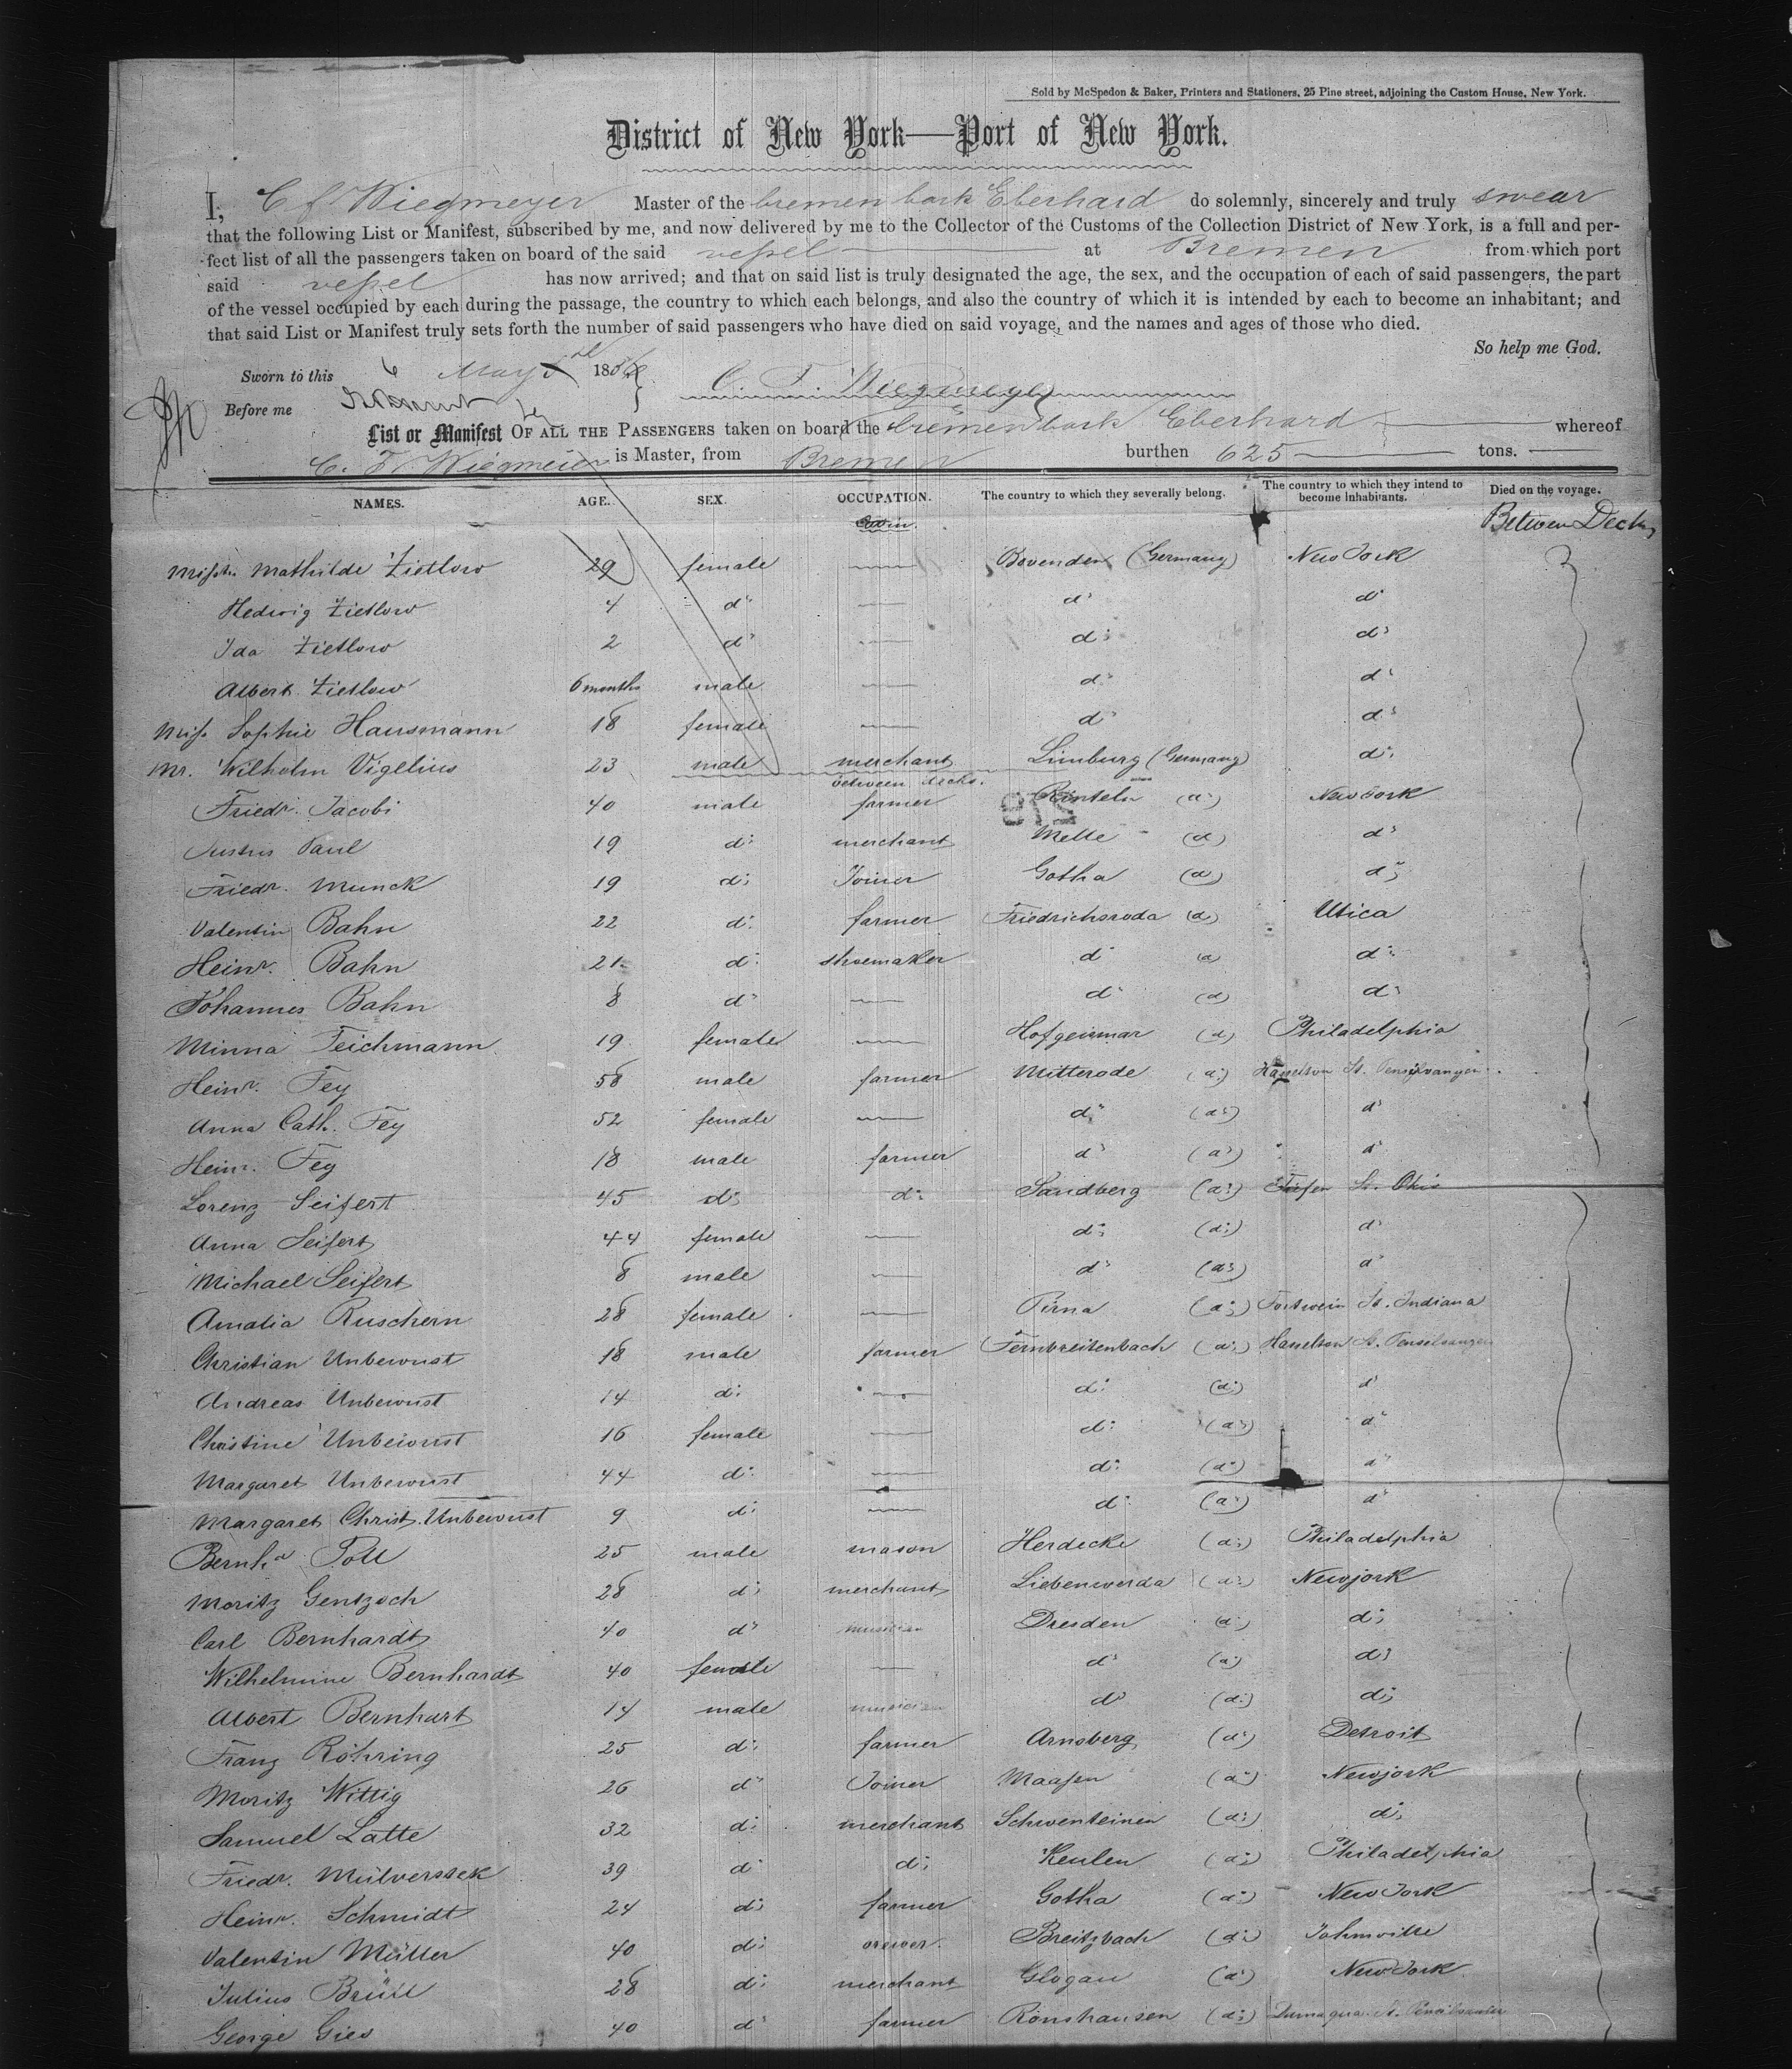 Sold by McSpedon & Baker, Printers and Stationers, 25 Pine street, adjoining the Custom House, New York.
District of New York—Port of New York.
I, C f Wiegmeyer Master of the bremen bark Eberhard do solemnly, sincerely and truly swear
that the following List or Manifest, subscribed by me, and now delivered by me to the Collector of the Customs of the Collection District of New York, is a full and per-
fect list of all the passengers taken on board of the said vessel at Bremen from which port
said vessel has now arrived; and that on said list is truly designated the age, the sex, and the occupation of each of said passengers, the part
of the vessel occupied by each during the passage, the country to which each belongs, and also the country of which it is intended by each to become an inhabitant; and
that said List or Manifest truly sets forth the number of said passengers who have died on said voyage, and the names and ages of those who died.
So help me God.
Sworn to this 6 May 18
C. F. Wiegmeyer
Before me
List or Manifest OF ALL THE PASSENGERS taken on board the bremen bark Eberhard whereof
C. F. Wiegmeier is Master, from Bremen burthen 625 tons.
NAMES. AGE. SEX. OCCUPATION. The country to which they severally belong. The country to which they intend to become inhabitants. Died on the voyage.
Between Decks
Mathilde Zietlow 29 female Bovenden (Germany) New York
Hedwig Zietlow 4 d° d° d°
Ida Zietlow 2 d° d° d°
Albert Zietlow 6 months male d° d°
Miss Sophie Hausmann 18 female d° d°
Mr. Wilhelm Vigelius 23 male merchant Limburg (Germany) d°
between decks.
Friedr. Jacobi 40 male farmer Rinteln (d°) New York
Justus Paul 19 d° merchant Melle (d) d°
Friedr. Munck 19 d° Joiner Gotha (d) d°
Valentin Bahn 22 d° farmer Friedrichsroda (d) Utica
Heinr. Bahn 21 d° shoemaker d° (d) d°
Johannes Bahn 8 d° d° (d) d°
Minna Teichmann 19 female Hofgeismar (d) Philadelphia
Heinr. Fey 58 male farmer Mitterode (d°)
Anna Cath. Fey 52 female d° (d°) d°
Heinr. Fey 18 male farmer d° (d°) d°
Lorenz Seifert 45 d° d° Sandberg (d°) St. Ohio
Anna Seifert 44 female d° (d°) d°
Michael Seifert 8 male d° (d°) d°
Amalia Ruschern 28 female Pirna (d°) Fortwein St. Indiana
Christian Unbewust 18 male farmer Fernbreitenbach (d°)
Andreas Unbewust 14 d° d° (d°) d°
Christine Unbewust 16 female d° (d°) d°
Margaret Unbewust 44 d° d° (d°) d°
Margaret Christ. Unbewust 9 d° d° (d°) d°
Bernhd Toll 25 male mason Herdecke (d°) Philadelphia
Moritz Gentzsch 28 d° merchant Liebenwerda (d°) Newjork
Carl Bernhardt 40 d° musician Dresden (d°) d°
Wilhelmine Bernhardt 40 female d° (d°) d°
Albert Bernhart 14 male musician d° (d°) d°
Franz Röhring 25 d° farmer Arnsberg (d°) Detroit
Moritz Wittig 26 d° Joiner Maassen (d°) Newjork
Samuel Latte 32 d° merchant Schwenteinen (d°) d°
Friedr. Mülverstek 39 d° d° Keulen (d°) Philadelphia
Heinr. Schmidt 24 d° farmer Gotha (d°) New York
Valentin Müller 40 d° brewer Breitzbach (d°) Johnsville
Julius Brüll 28 d° merchant Glogau (d°) New York
George Gies 40 d° farmer Rönshausen (d°)